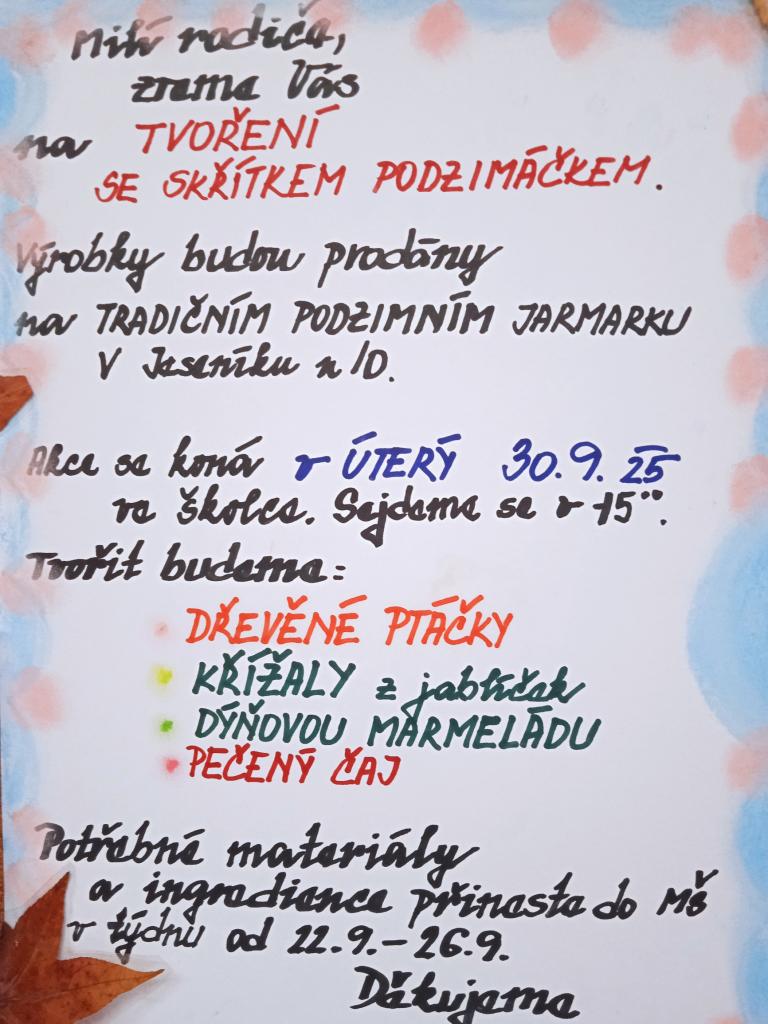 Milí rodiče,
zveme Vás
na TVOŘENÍ
SE SKŘÍTKEM PODZIMÁČKEM.
Výrobky budou prodány
na TRADIČNÍM PODZIMNÍM JARMARKU
V Jeseníku n/O.
Akce se koná v ÚTERÝ 30.9.25
ve školce. Sejdeme se v 15°°.
Tvořit budeme:
• DŘEVĚNÉ PTÁČKY
• KŘÍŽALY z jablíček
• DÝŇOVOU MARMELÁDU
• PEČENÝ ČAJ
Potřebné materiály
a ingredience přineste do MŠ
v týdnu od 22.9.-26.9.
Děkujeme